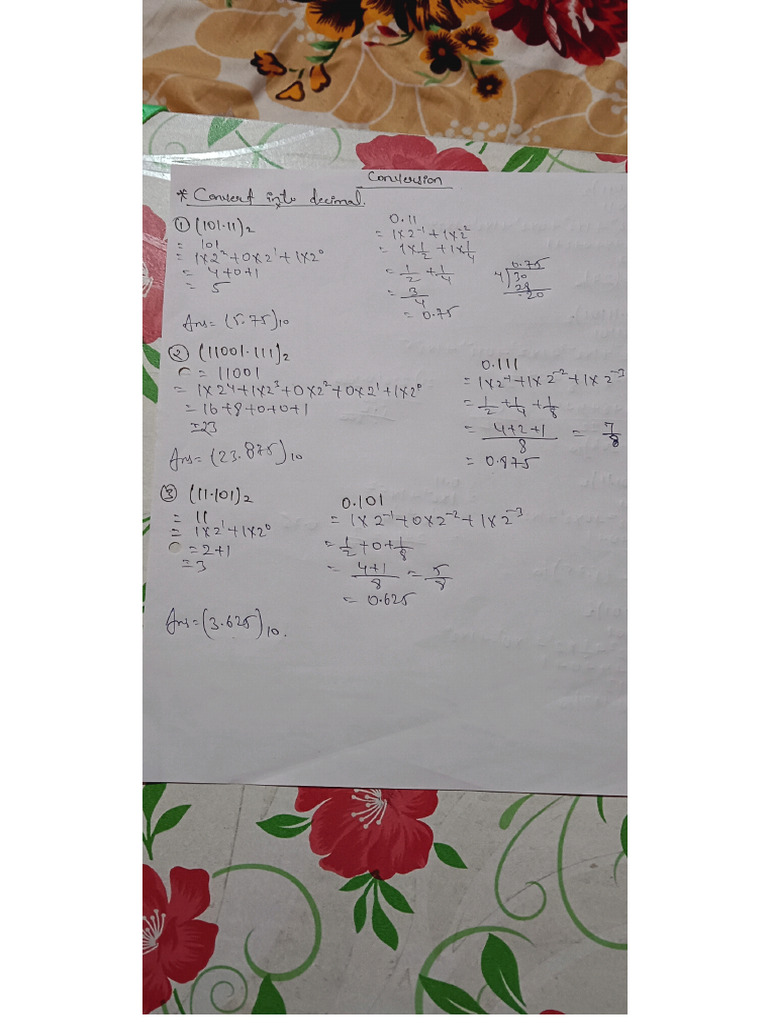 Conversion
* Convert into decimal.
① (101.11)₂
= 101
= 1×2² + 0×2¹ + 1×2⁰
= 4+0+1
= 5
0.11
= 1×2⁻¹ + 1×2⁻²
= 1×1/2 + 1×1/4
= 1/2 + 1/4
= 3/4
= 0.75
0.75
4)30
28
20
Ans = (5.75)₁₀
② (11001.111)₂
= 11001
= 1×2⁴+1×2³+0×2²+0×2¹+1×2⁰
= 16+8+0+0+1
=23
0.111
= 1×2⁻¹+1×2⁻²+1×2⁻³
= 1/2 + 1/4 + 1/8
= 4+2+1/8 = 7/8
= 0.875
Ans = (23.875)₁₀
③ (11.101)₂
= 11
= 1×2¹+1×2⁰
= 2+1
=3
0.101
= 1×2⁻¹+0×2⁻²+1×2⁻³
= 1/2 + 0 + 1/8
= 4+1/8 = 5/8
= 0.625
Ans = (3.625)₁₀.